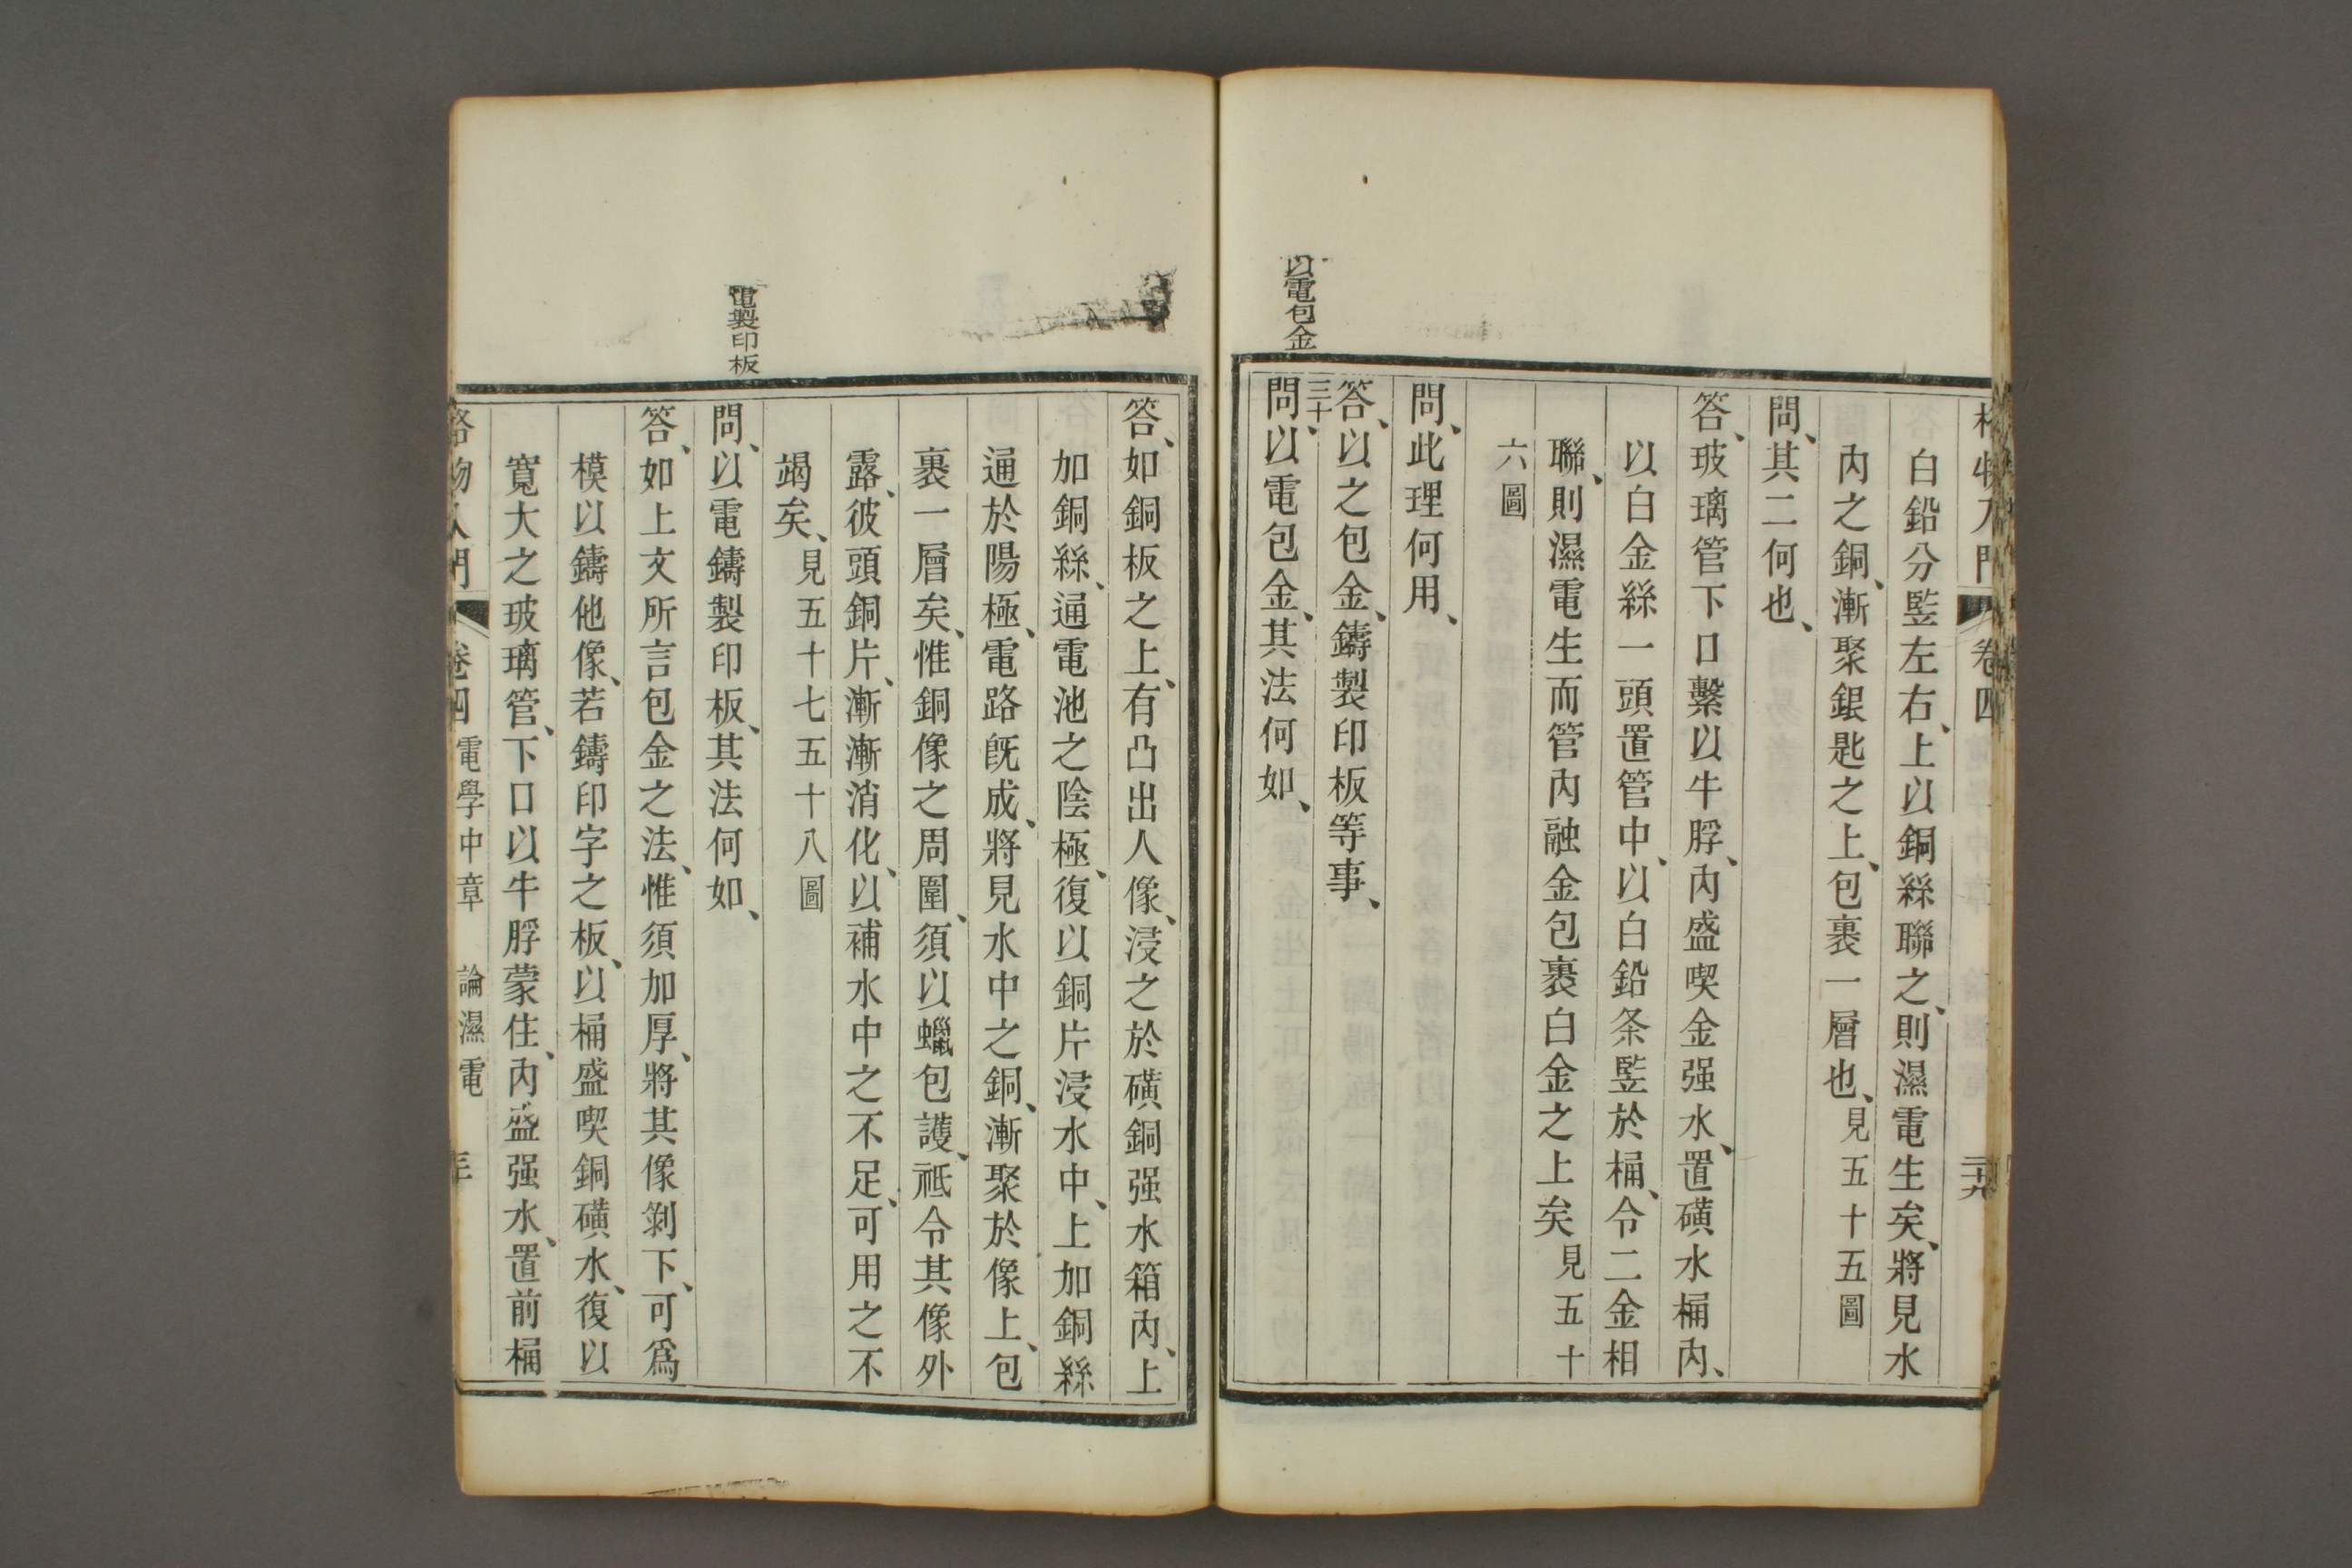 格物入門 卷四
白鉛分竪左右、上以銅絲聯之、則濕電生矣、將見水
內之銅、漸聚銀匙之上、包裹一層也、見五十五圖
問、其二何也、
答、玻璃管下口繫以牛脬、內盛喫金强水、置磺水桶內、
以白金絲一頭置管中、以白鉛条竪於桶、令二金相
聯、則濕電生而管內融金包裹白金之上矣見五十
六圖
問、此理何用、
答、以之包金、鑄製印板等事、
三十
問、以電包金、其法何如、
以電包金
答、如銅板之上、有凸出人像、浸之於磺銅强水箱內、上
加銅絲、通電池之陰極、復以銅片浸水中、上加銅絲
通於陽極、電路旣成、將見水中之銅、漸聚於像上、包
裹一層矣、惟銅像之周圍、須以蠟包護、祗令其像外
露、彼頭銅片、漸漸消化、以補水中之不足、可用之不
竭矣、見五十七五十八圖
問、以電鑄製印板、其法何如、
電製印板
答、如上文所言包金之法、惟須加厚、將其像剝下、可爲
模以鑄他像、若鑄印字之板、以桶盛喫銅磺水、復以
寬大之玻璃管、下口以牛脬蒙住、內盛强水、置前桶
格物入門 卷四 電學中章 論濕電